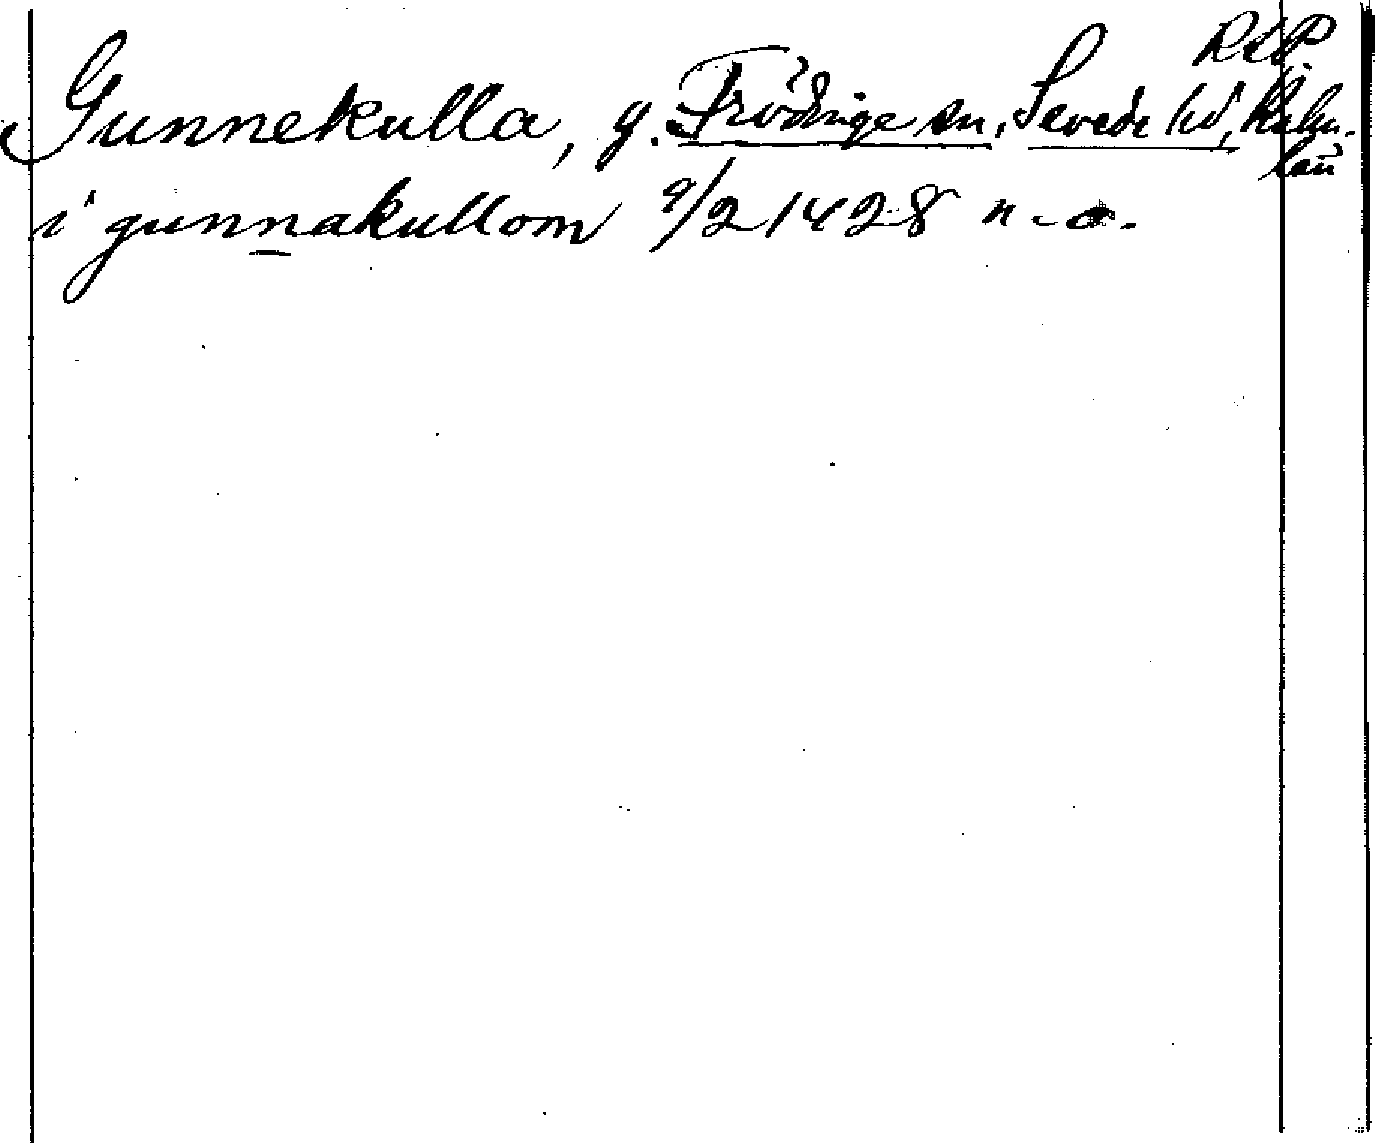 RAP
Gunnekulla, g. Frödinge sn, Sevede hd, Kalm.
län
i gunnakullom 9/2 1428 n-o.